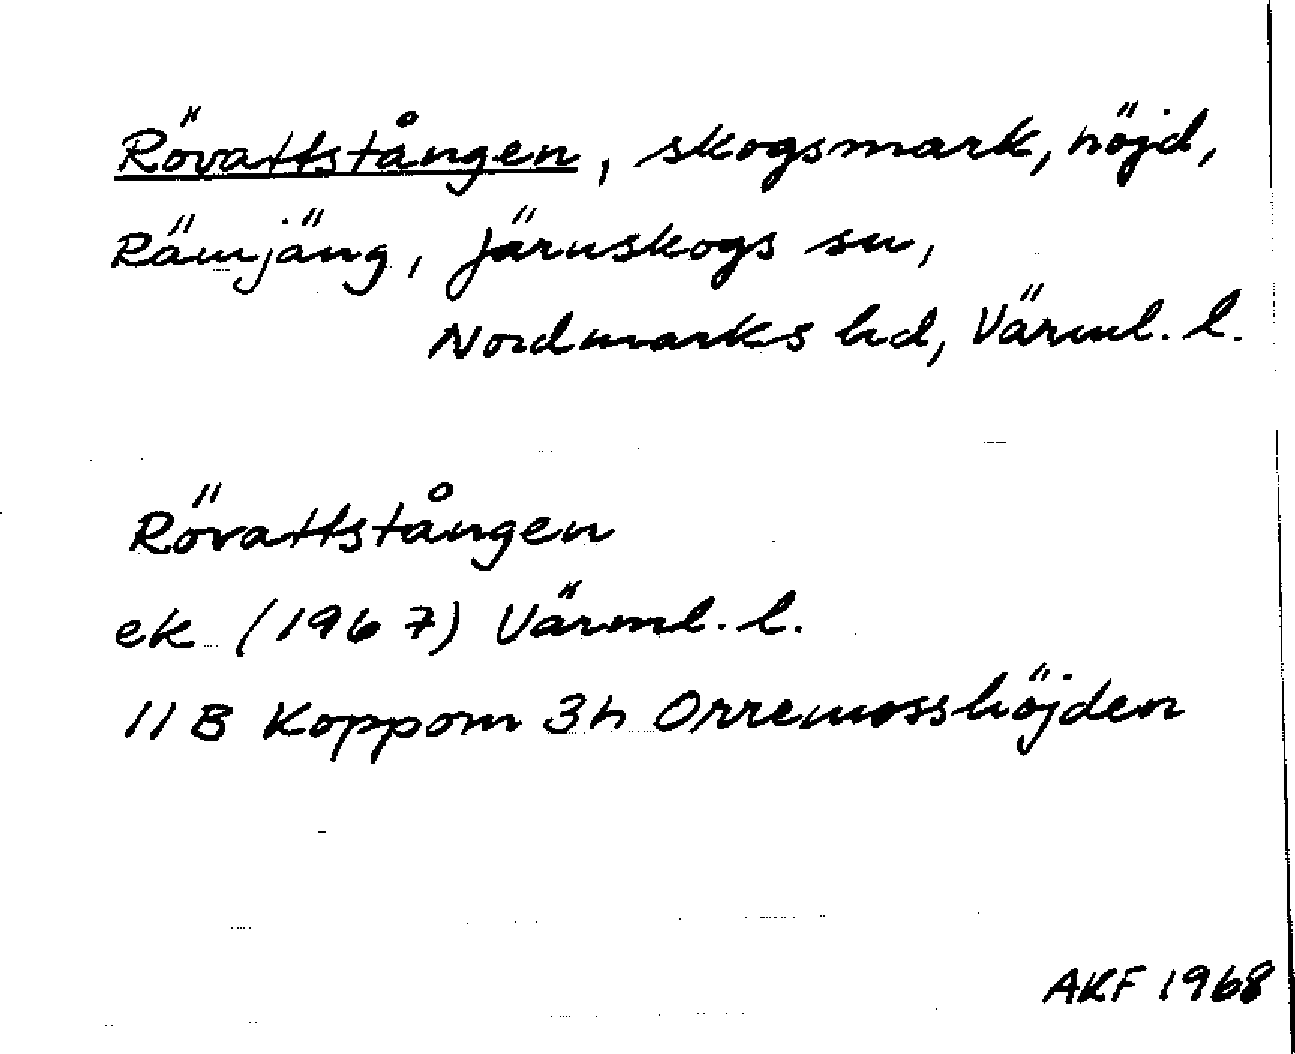 Rövattstången, skogsmark, höjd,
Rämjäng, Järnskogs sn,
Nordmarks hd, Värml. l.
Rövattstången
ek (1967) Värml. l.
11 B Koppom 3h Orremosshöjden
AKF 1968